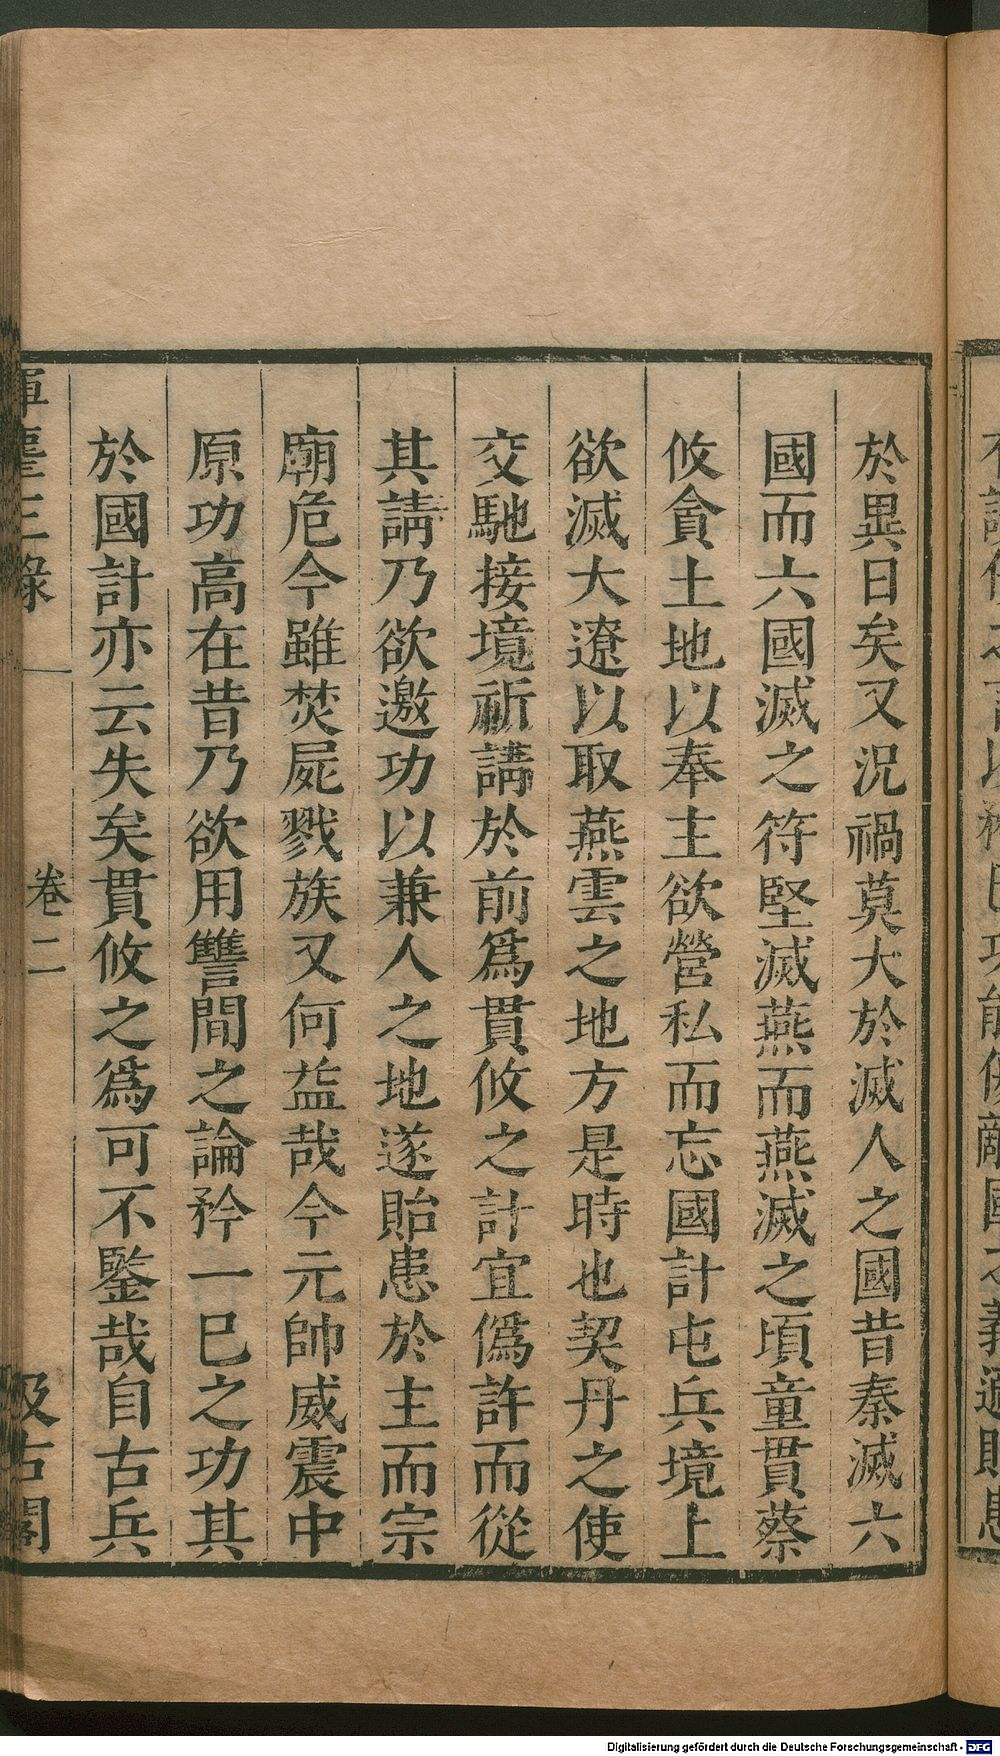 於異日矣又況禍莫大於滅人之國昔秦滅六
國而六國滅之符堅滅燕而燕滅之頃童貫蔡
攸貪土地以奉主欲營私而忘國計屯兵境上
欲滅大遼以取燕雲之地方是時也契丹之使
交馳接境祈講於前爲貫攸之計宜僞許而從
其請乃欲邀功以兼人之地遂貽患於主而宗
廟危今雖焚屍戮族又何益哉今元帥威震中
原功高在昔乃欲用讐間之論矜一巳之功其
於國計亦云失矣貫攸之爲可不鑒哉自古兵
揮麈三錄
卷二
汲古閣
Digitalisierung gefördert durch die Deutsche Forschungsgemeinschaft - DFG